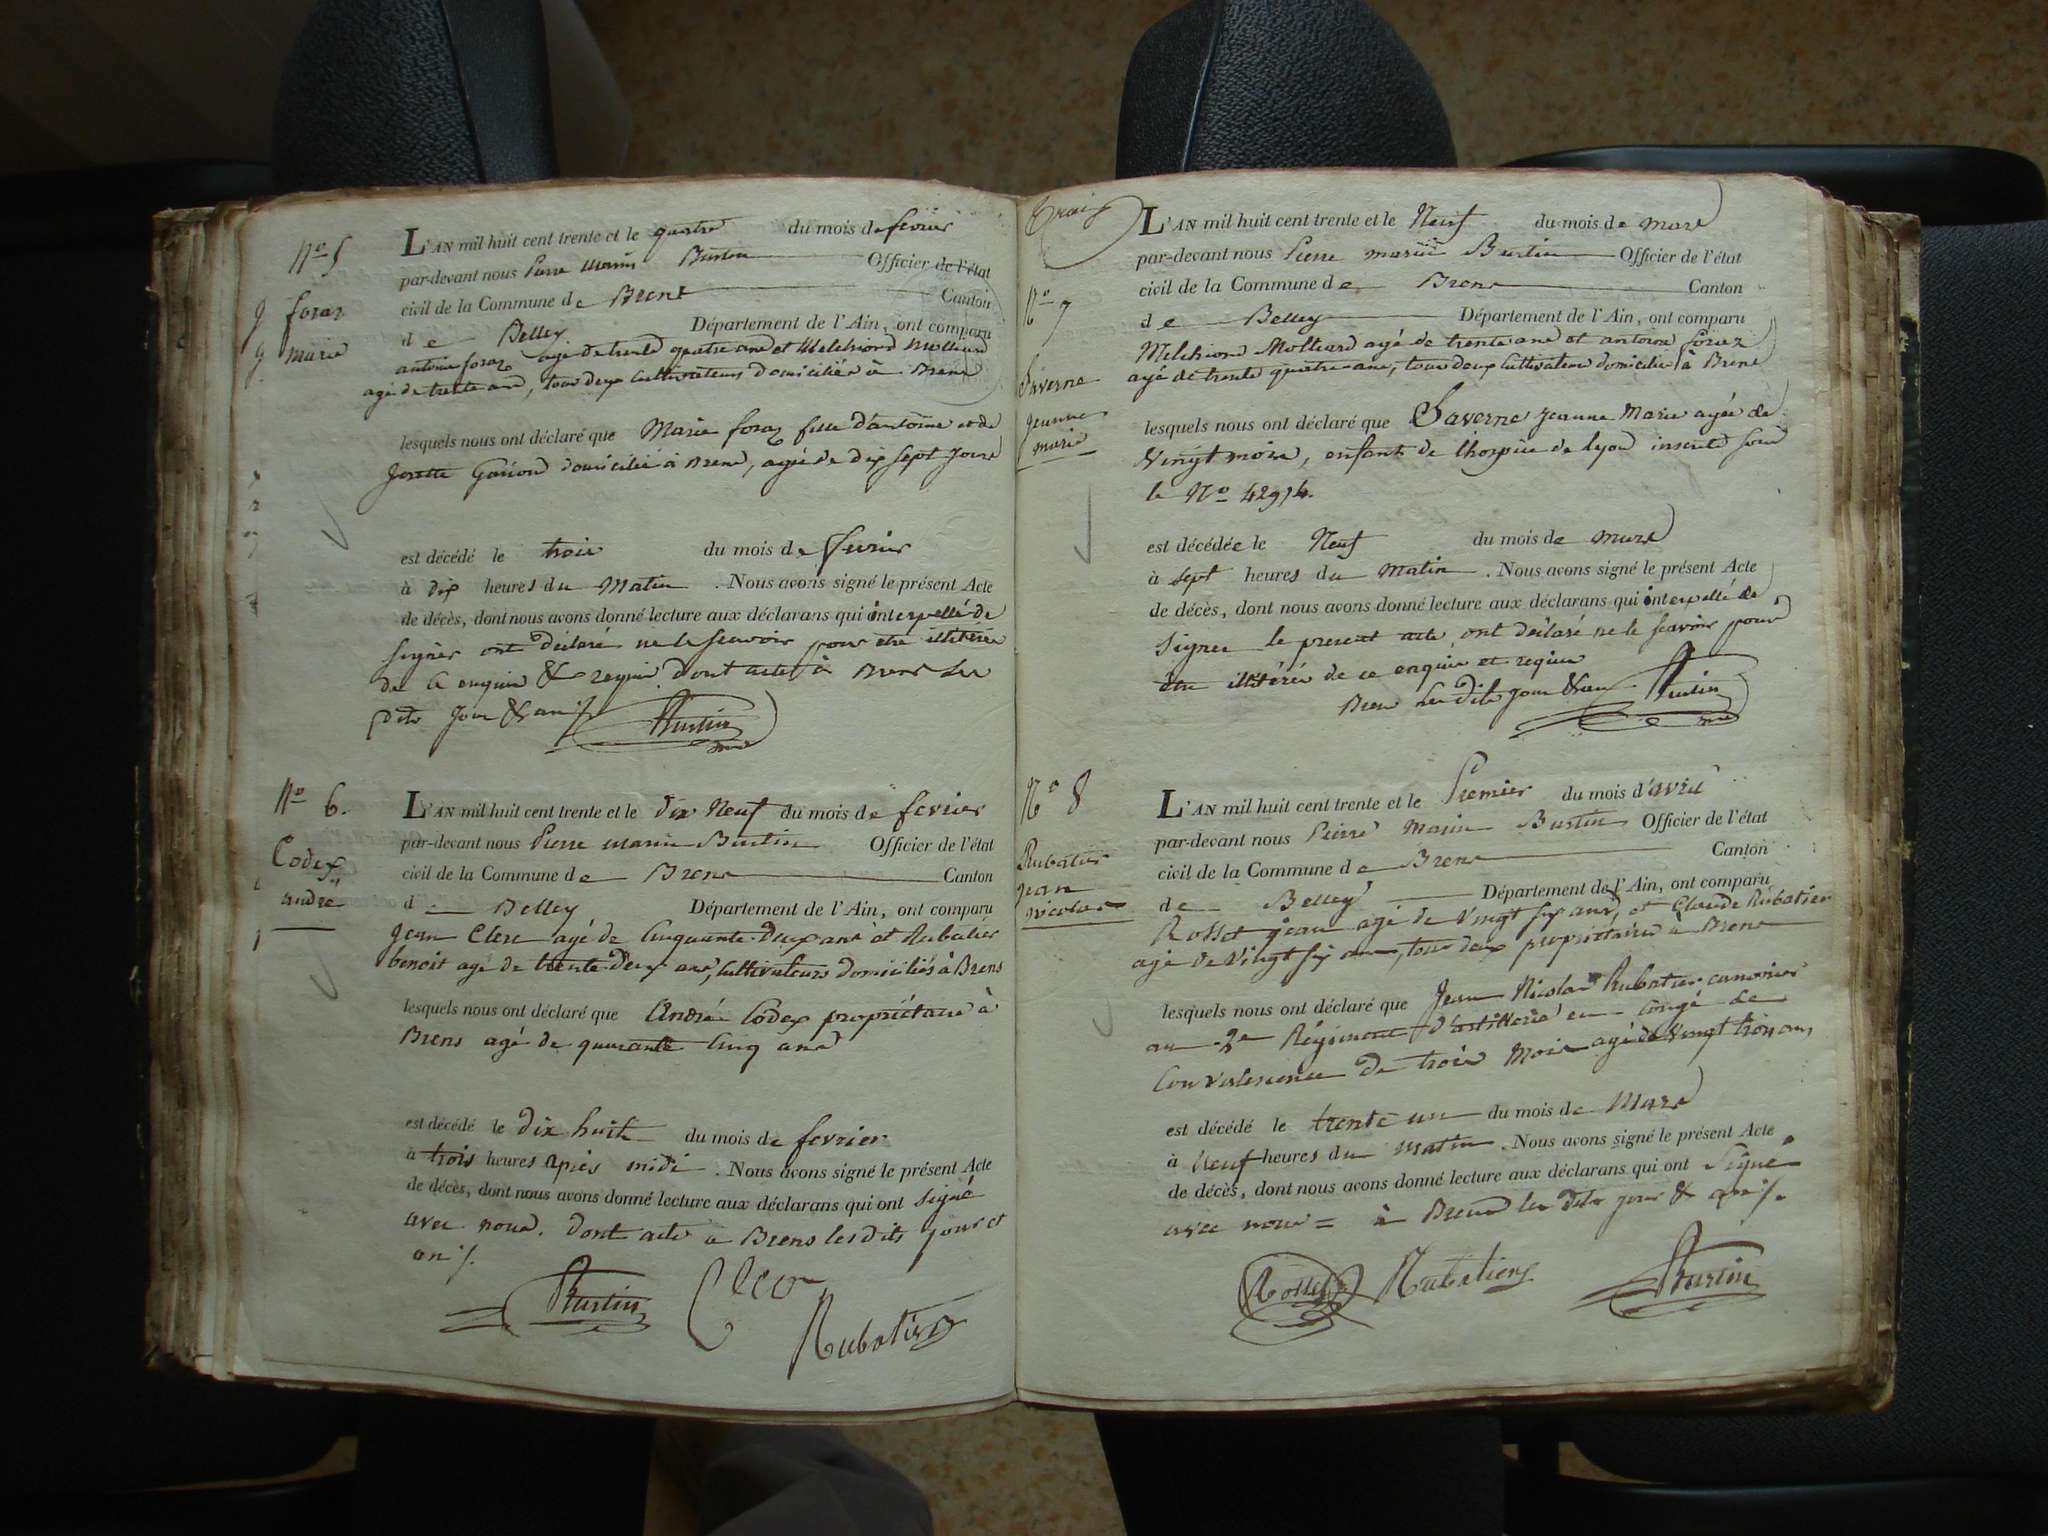 N° 5
foraz
marie
L'AN mil huit cent trente et le quatre du mois de fevrier
par-devant nous Pierre Marin Burtin Officier de l'état
civil de la Commune de Brens Canton
de Belley Département de l'Ain, ont comparu
antoine foraz agé de trente quatre ans et Melchiord Molliard
agé de trente ans, tous deux Cultivateurs domiciliés à Brens
lesquels nous ont déclaré que Marie foraz fille d'antoine et de
Josette domicilié à Brens, agée de dix sept jours
est décédé le trois du mois de fevrier
à dix heures du Matin . Nous avons signé le présent Acte
de décès, dont nous avons donné lecture aux déclarans qui interpellé de
signer ont déclaré ne le scavoir pour etre illitérés
de ce enquis & requis dont acte à Brens les
dits jour & an ·/.
Burtin
N° 6.
Codex
andré
L'AN mil huit cent trente et le dix Neuf du mois de fevrier
par-devant nous Pierre marin Burtin Officier de l'état
civil de la Commune de Brens Canton
d Belley Département de l'Ain, ont comparu
Jean Clerc agé de Cinquante-Deux ans et Rubatier
benoit agé de trente-deux ans, Cultivateurs domiciliés à Brens
lesquels nous ont déclaré que André Codex propriétaire à
Brens agé de quarante Cinq ans
est décédé le dix huit du mois de fevrier
à trois heures après midi . Nous avons signé le présent Acte
de décès, dont nous avons donné lecture aux déclarans qui ont signé
avec nous. dont acte a Brens les dits jour et
an ·/.
Burtin Clerc
Rubatier
trois
N° 7
Saverne
jeanne
marie
L'AN mil huit cent trente et le Neuf du mois de mars
par-devant nous Pierre marin Burtin Officier de l'état
civil de la Commune de Brens Canton
de Belley Département de l'Ain, ont comparu
Melchiord Molliard agé de trente ans et antoine foraz
agé de trente quatre ans, tous deux Cultivateurs domiciliés à Brens
lesquels nous ont déclaré que Saverne jeanne Marie agée de
vingt mois, enfant de lhospice de lyon inscrite sous
le N° 42974.
est décédée le Neuf du mois de mars
à sept heures du matin . Nous avons signé le présent Acte
de décès, dont nous avons donné lecture aux déclarans qui interpellé de
signer le present acte ont déclaré ne le scavoir pour
etre illitérés de ce enquis et requis
Brens les dits jour & an
Burtin
N° 8
Rubatier
jean
nicolas
L'AN mil huit cent trente et le Premier du mois d'avril
par-devant nous Pierre Marin Burtin Officier de l'état
civil de la Commune de Brens Canton
de Belley Département de l'Ain, ont comparu
Rosset jean agé de vingt six ans, et Claude Rubatier
agé de vingt six ans, tous deux propriétaires à Brens
lesquels nous ont déclaré que Jean Nicolas Rubatier canonier
au Régiment d'artillerie en congé de
Convalescence de trois Mois agé de vingt trois ans
est décédé le trente un du mois de Mars
à Neuf heures du matin . Nous avons signé le présent Acte
de décès, dont nous avons donné lecture aux déclarans qui ont signé
avec nous = à Brens les dits jour & an ·/.
Rosset Rubatier Burtin